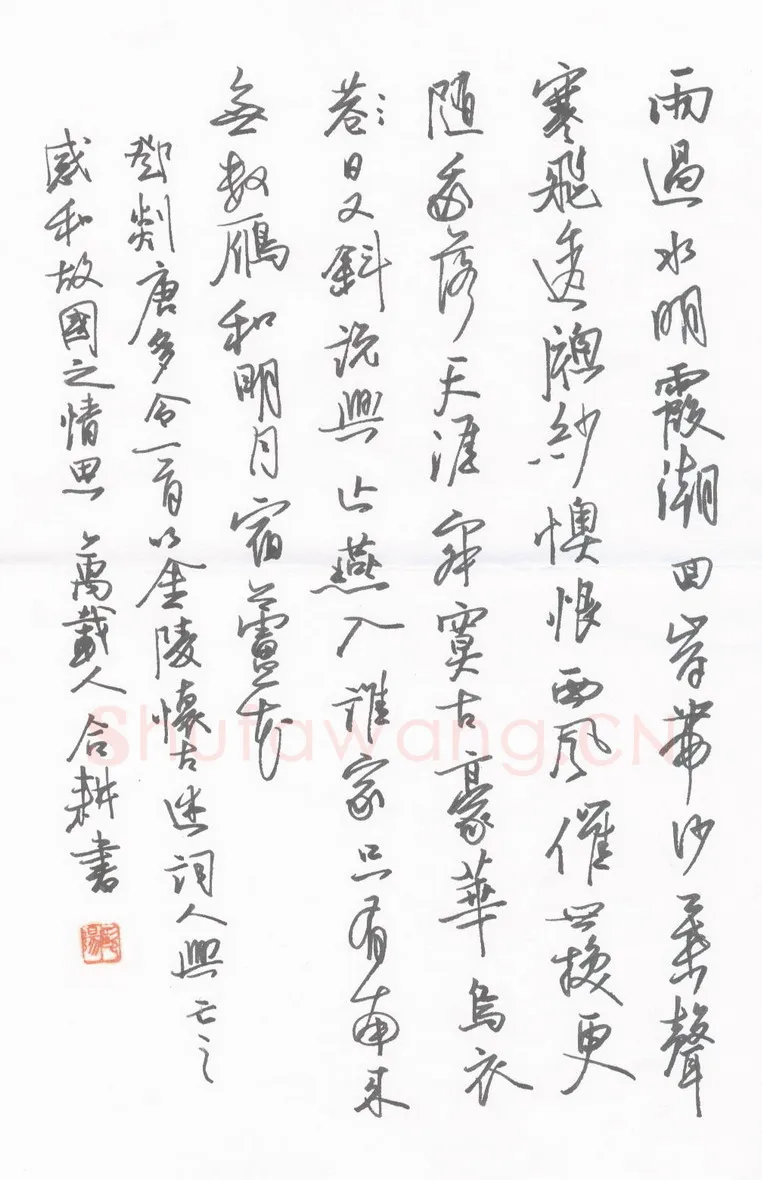 雨過水明霞潮回岸帶沙葉聲
寒飛透牕紗懊恨西風催世換更
随我落天涯寂寞古豪華烏衣
巷日又斜說興亡燕入誰家只有南來
無數鴈和明月宿蘆花
鄧剡唐多令一首以金陵懷古述詞人興亡之
感和故國之情思 萬載人合耕書
Shufawang.CN